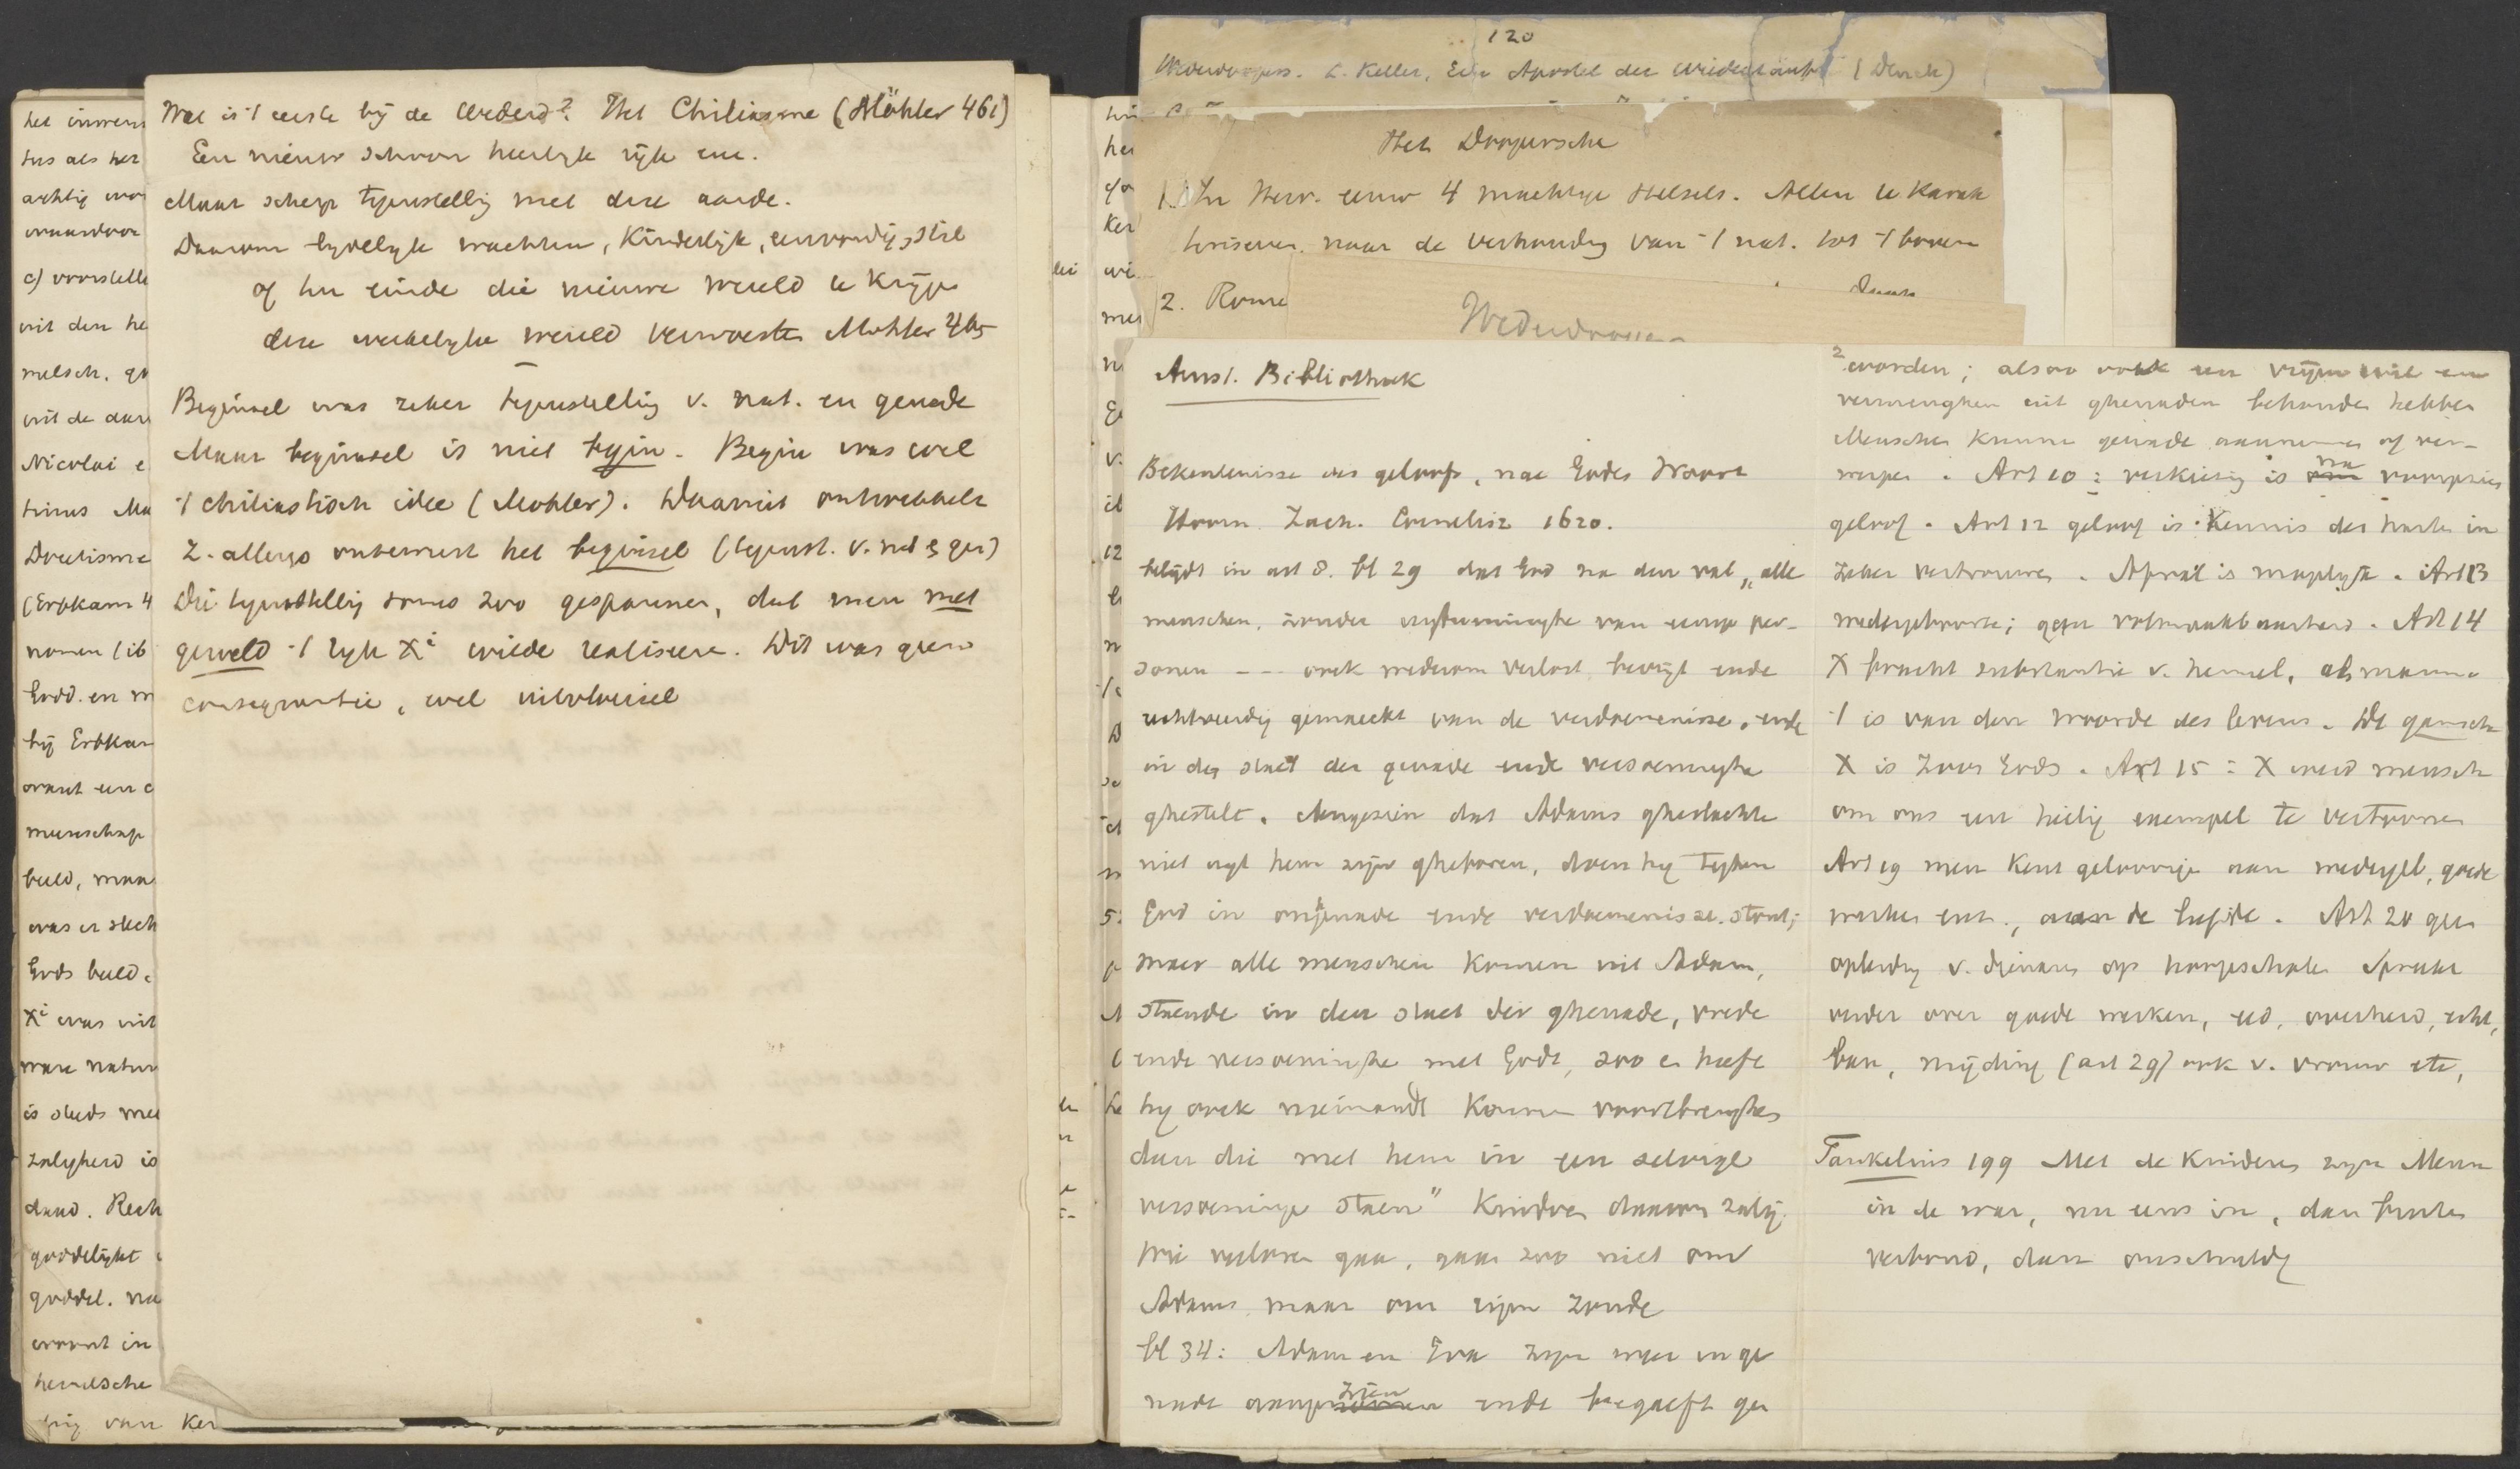 het inwen
tus als het
achtig wor
waardoor
c) voorstelle
uit den he
melsch. ge
uit de aar
Nicolai e
tinus Me
Doetisme
(Erbkam 4
nomen (ib
Godd. en m
bij Erbkam
want een
menschap
beeld, maa
was er slech
Gods beeld.
Xi was uit
ware natuur
is steeds me
zaligheid is
daad. Rech
goddelijke
goddel. na
woont in
hemelsche
van Ker
Wat is 't eerste bij de Wederd? Het Chiliasme (Möhler 461)
Een nieuw schoon heerlijk rijk enz.
Maar scherp tegenstellig met deze aarde.
Daarom lijdelijk wachten, Kinderlijk, eenvoudig, stil
of ten einde die nieuwe wereld te krijgen
deze werkelijke wereld verwoesten Möhler 465
Beginsel was zeker tegenstelling v. nat. en genade
Maar beginsel is niet begin. Begin was wel
't chiliastisch idee (Möhler). Daaruit ontwikkelt
z. allengs onbewust het beginsel (tegenst. v. nat & gen)
Die tegenstelling soms zoo gespannen, dat men met
geweld 't rijk Xi wilde realiseeren. Dit was geen
consequentie, wel uitvloeisel
120
Wederdoopers. L. Keller, Ein Apostel der Wiedertäufer (Denck)
Het Doopersche
1. In Herv. eeuw 4 machtige stelsels. Allen te karak
teriseeren naar de verhouding van 't nat. tot 't boven
2. Rome
Wederdoopers
Amst. Bibliotheek
Bekentenisse des geloofs, nae Godes Woort
Hoorn. Zach. Cornelisz 1620.
belijdt in art 8. bl 29 dat God na den val „alle
menschen, zonder uytneminghe van eenige per-
sonen --- oock wederom verlost bevrijt ende
rechtveerdig gemaeckt van de verdoemenisse, ende
in den staet der genade ende versoeninghe
ghestelt. Aengesien dat Adams gheslachte
niet uyt hem zijn gheboren, doen hy teghen
God in ongenade ende verdoemenisse stont;
maer alle menschen komen uit Adam,
staende in den staet der ghenade, vrede
ende versoeninghe met Godt, zoo en heeft
hy oock niemandt konnen voortbrenghen
dan die met hem in een selvige
versoeninge staen" Kinderen daarom zalig.
Wie verloren gaan, gaan zoo niet om
Adams maar om eigen zonde
bl 34: Adam en Eva zijn weer in ge
nade aangenomen zijn ende begaeft ge
2 worden; alsoo oock een vrijen wil en
vermenghen uit ghenaden behouden hebben
Menschen kunnen genade aannemen of ver-
werpen. Art 10: verkiezing is om na voorgezien
geloof. Art 12 geloof is: Kennis des harten in
zeker vertrouwen. Afval is mogelijk. Art 13
wedergeboorte; geen volmaaktbaarheid. Art 14
X bracht substantie v. hemel, als manna
't is van den woorde des levens. De gansche
X is Zoon Gods. Art 15: X werd mensch
om ons een heilig exempel te vertoonen
Art 19 men kent geloovige aan wedergeb, goede
werken enz., aan de liefde. Art 20 geen
opleiding v. dienaren op hoogescholen Spreekt
verder over goede werken, eed, overheid, echt,
ban, mijding (art 29) ook v. vrouw etc,
Taukelius 199 Met de kinderen zijn Menn
in de war, nu eens in, dan buiten
verbond, dan onschuldig